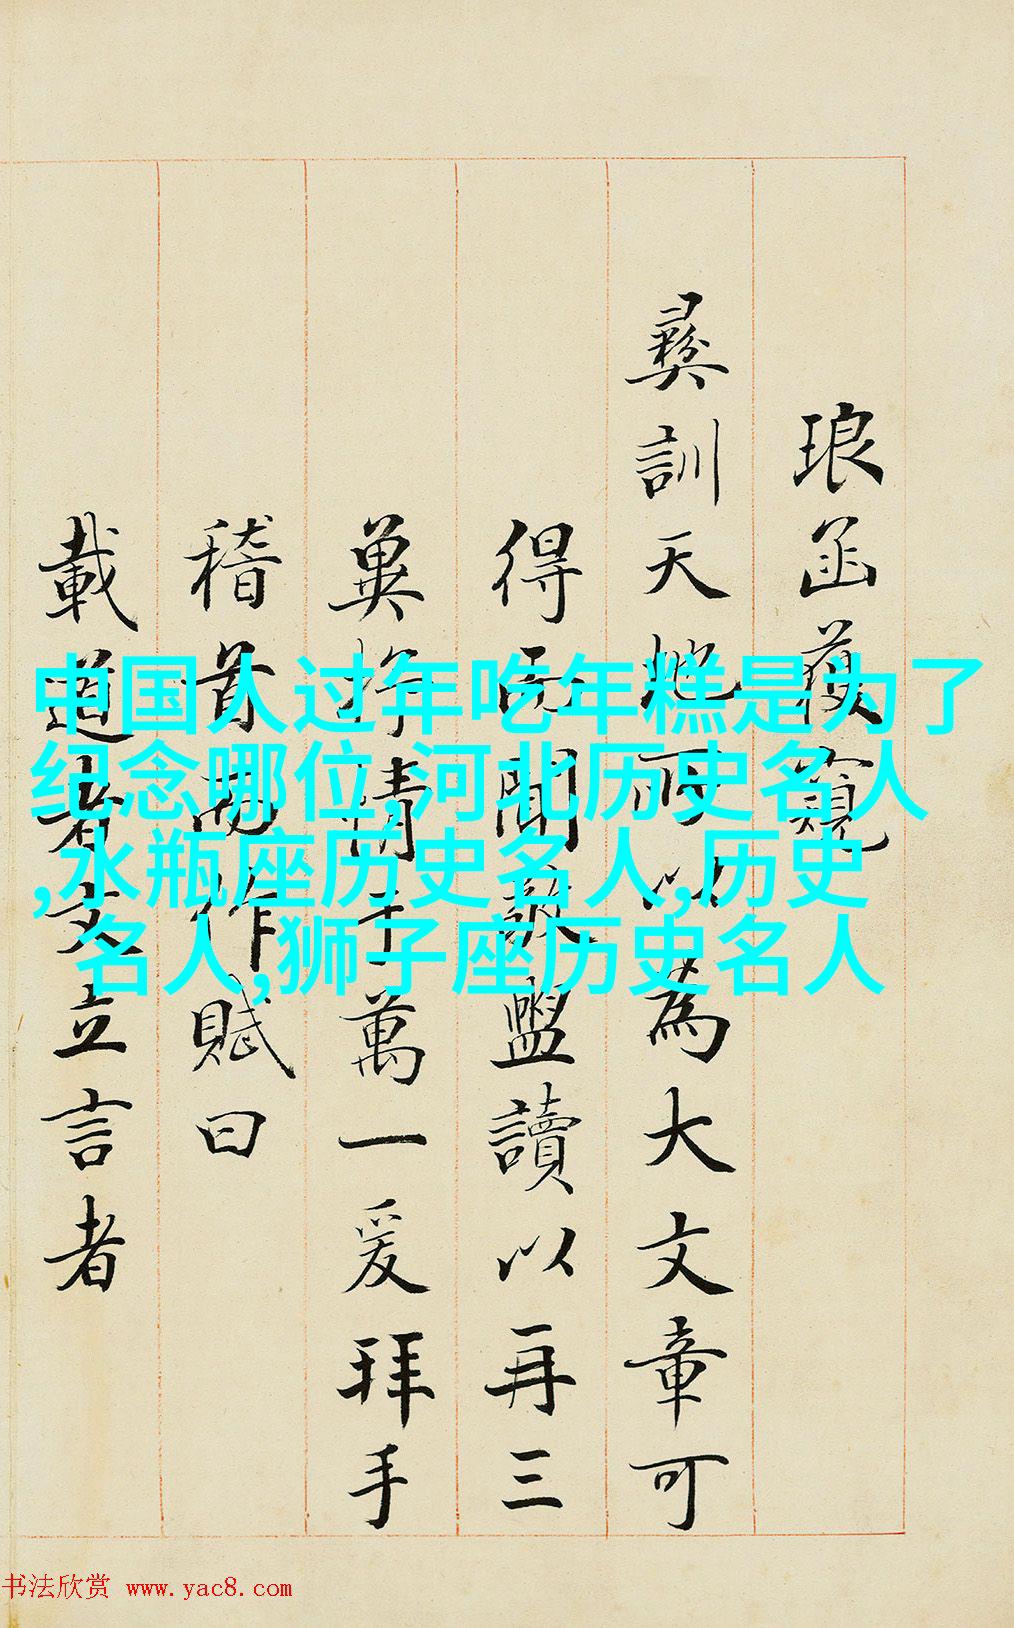 琅函獲窺
彝訓天地可以為大文章可
得而聞敬盥讀以再三
冀抒情于萬一爰拜手
稽首而作賦曰
載道者文立言者
中国人过年吃年糕是为了
纪念哪位,河北历史名人
,水瓶座历史名人,历史
名人,狮子座历史名人
书法欣赏 www.yac8.com